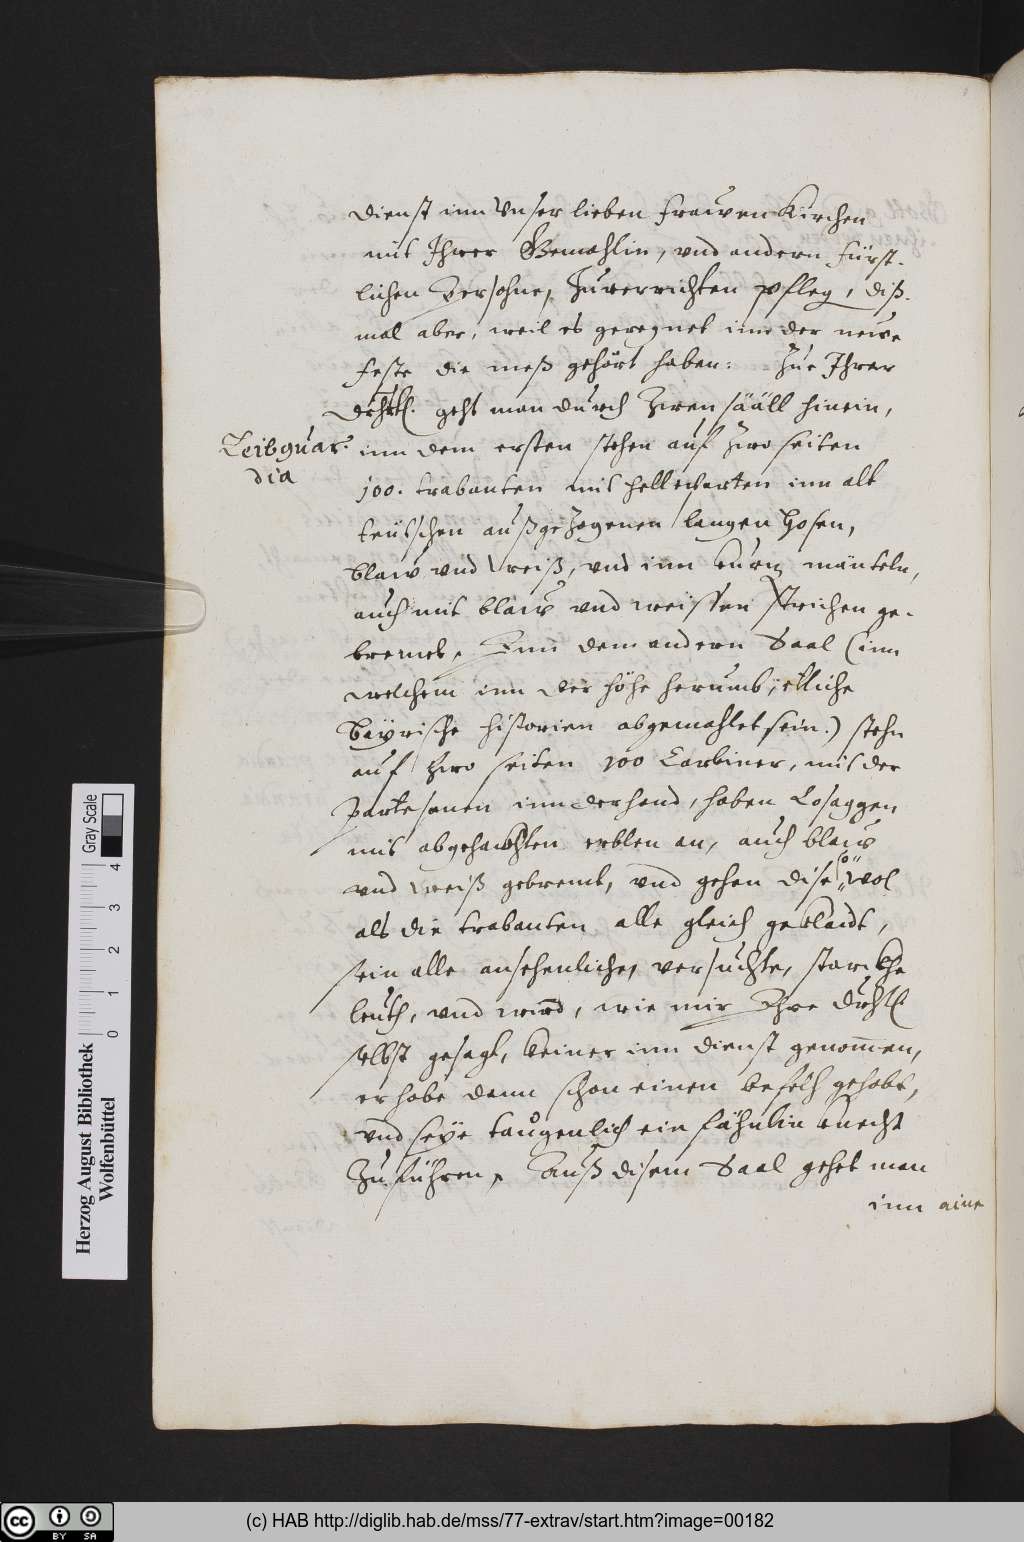 dienst inn Vnser lieben frawen Kirchen
mit Ihrer Gemahlin, vnd andern fürst-
lichen Persohne, zuverrichten pfleg, diß-
mal aber, weil es geregnet inn der newe
feste die meß gehört haben: Zue Ihrer
Drhtl. geht man durch zwen sääll hinein,
Leibguar-
dia
inn dem ersten stehen auf zwo seiten
100. trabanten mit hellebarten inn alt
teütschen außgezogenen langen Hosen,
blaw vnd weiß, vnd inn kurz mänteln,
auch mit blaw vnd weissen strichen ge-
bremt, Inn dem andern Saal (inn
welchem inn der höhe herumb, etliche
Bayrische historien abgemahlet sein.) stehn
auf zwo seiten 100 Carbiner, mit der
Partesanen inn der hand, haben Cosaggen
mit abgehackhten erblen an, auch blaw
vnd weiß gebremt, vnd gehen dise so wol
als die trabanten alle gleich geklaidt,
sein alle ansehenliche, versuchte, starckhe
leuth, vnd wird, wie mir Ihre Drhtl
selbst gesagt, keiner inn dienst genommen,
er habe dann schon einen befelh gehabt,
vnd seye taugenlich ein fähnlin knecht
zuführen, Auß disem Saal gehet man
inn aine
Herzog August Bibliothek
Wolfenbüttel
Gray Scale
0 1 2 3 4
cc BY SA
(c) HAB http://diglib.hab.de/mss/77-extrav/start.htm?image=00182